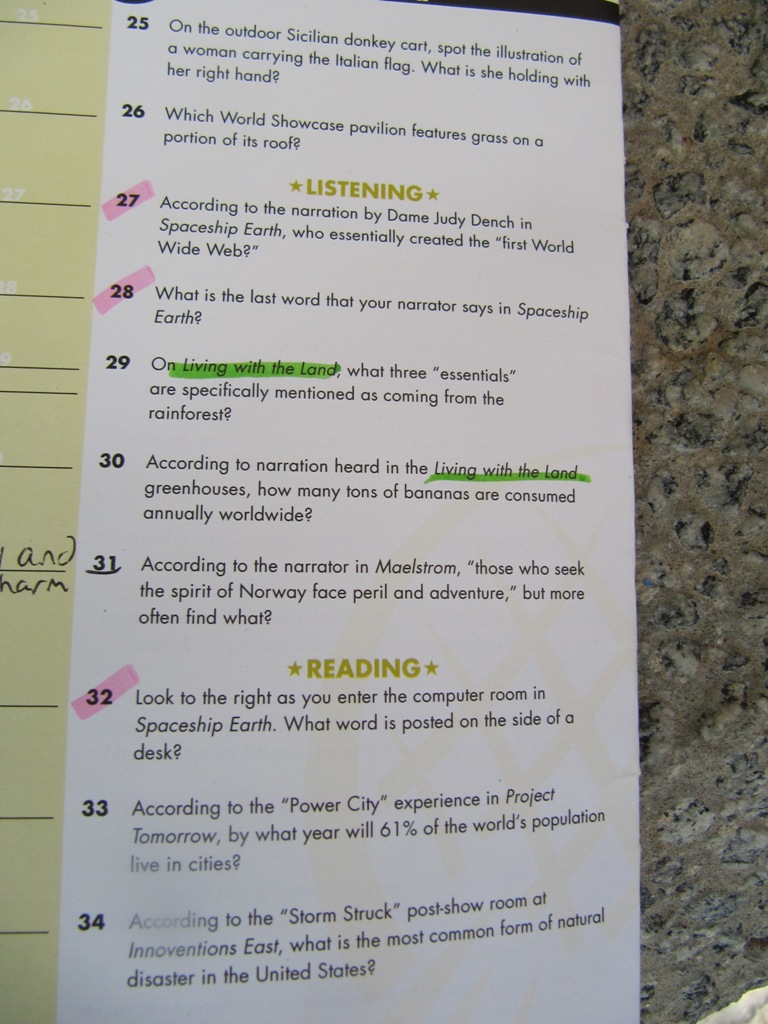 25
25 On the outdoor Sicilian donkey cart, spot the illustration of
a woman carrying the Italian flag. What is she holding with
her right hand?
26
26 Which World Showcase pavilion features grass on a
portion of its roof?
★LISTENING★
27
27 According to the narration by Dame Judy Dench in
Spaceship Earth, who essentially created the “first World
Wide Web?”
28
28 What is the last word that your narrator says in Spaceship
Earth?
9
29 On Living with the Land, what three “essentials”
are specifically mentioned as coming from the
rainforest?
30 According to narration heard in the Living with the Land
greenhouses, how many tons of bananas are consumed
annually worldwide?
and
harm
31 According to the narrator in Maelstrom, “those who seek
the spirit of Norway face peril and adventure,” but more
often find what?
★READING★
32 Look to the right as you enter the computer room in
Spaceship Earth. What word is posted on the side of a
desk?
33 According to the “Power City” experience in Project
Tomorrow, by what year will 61% of the world’s population
live in cities?
34 According to the “Storm Struck” post-show room at
Innoventions East, what is the most common form of natural
disaster in the United States?